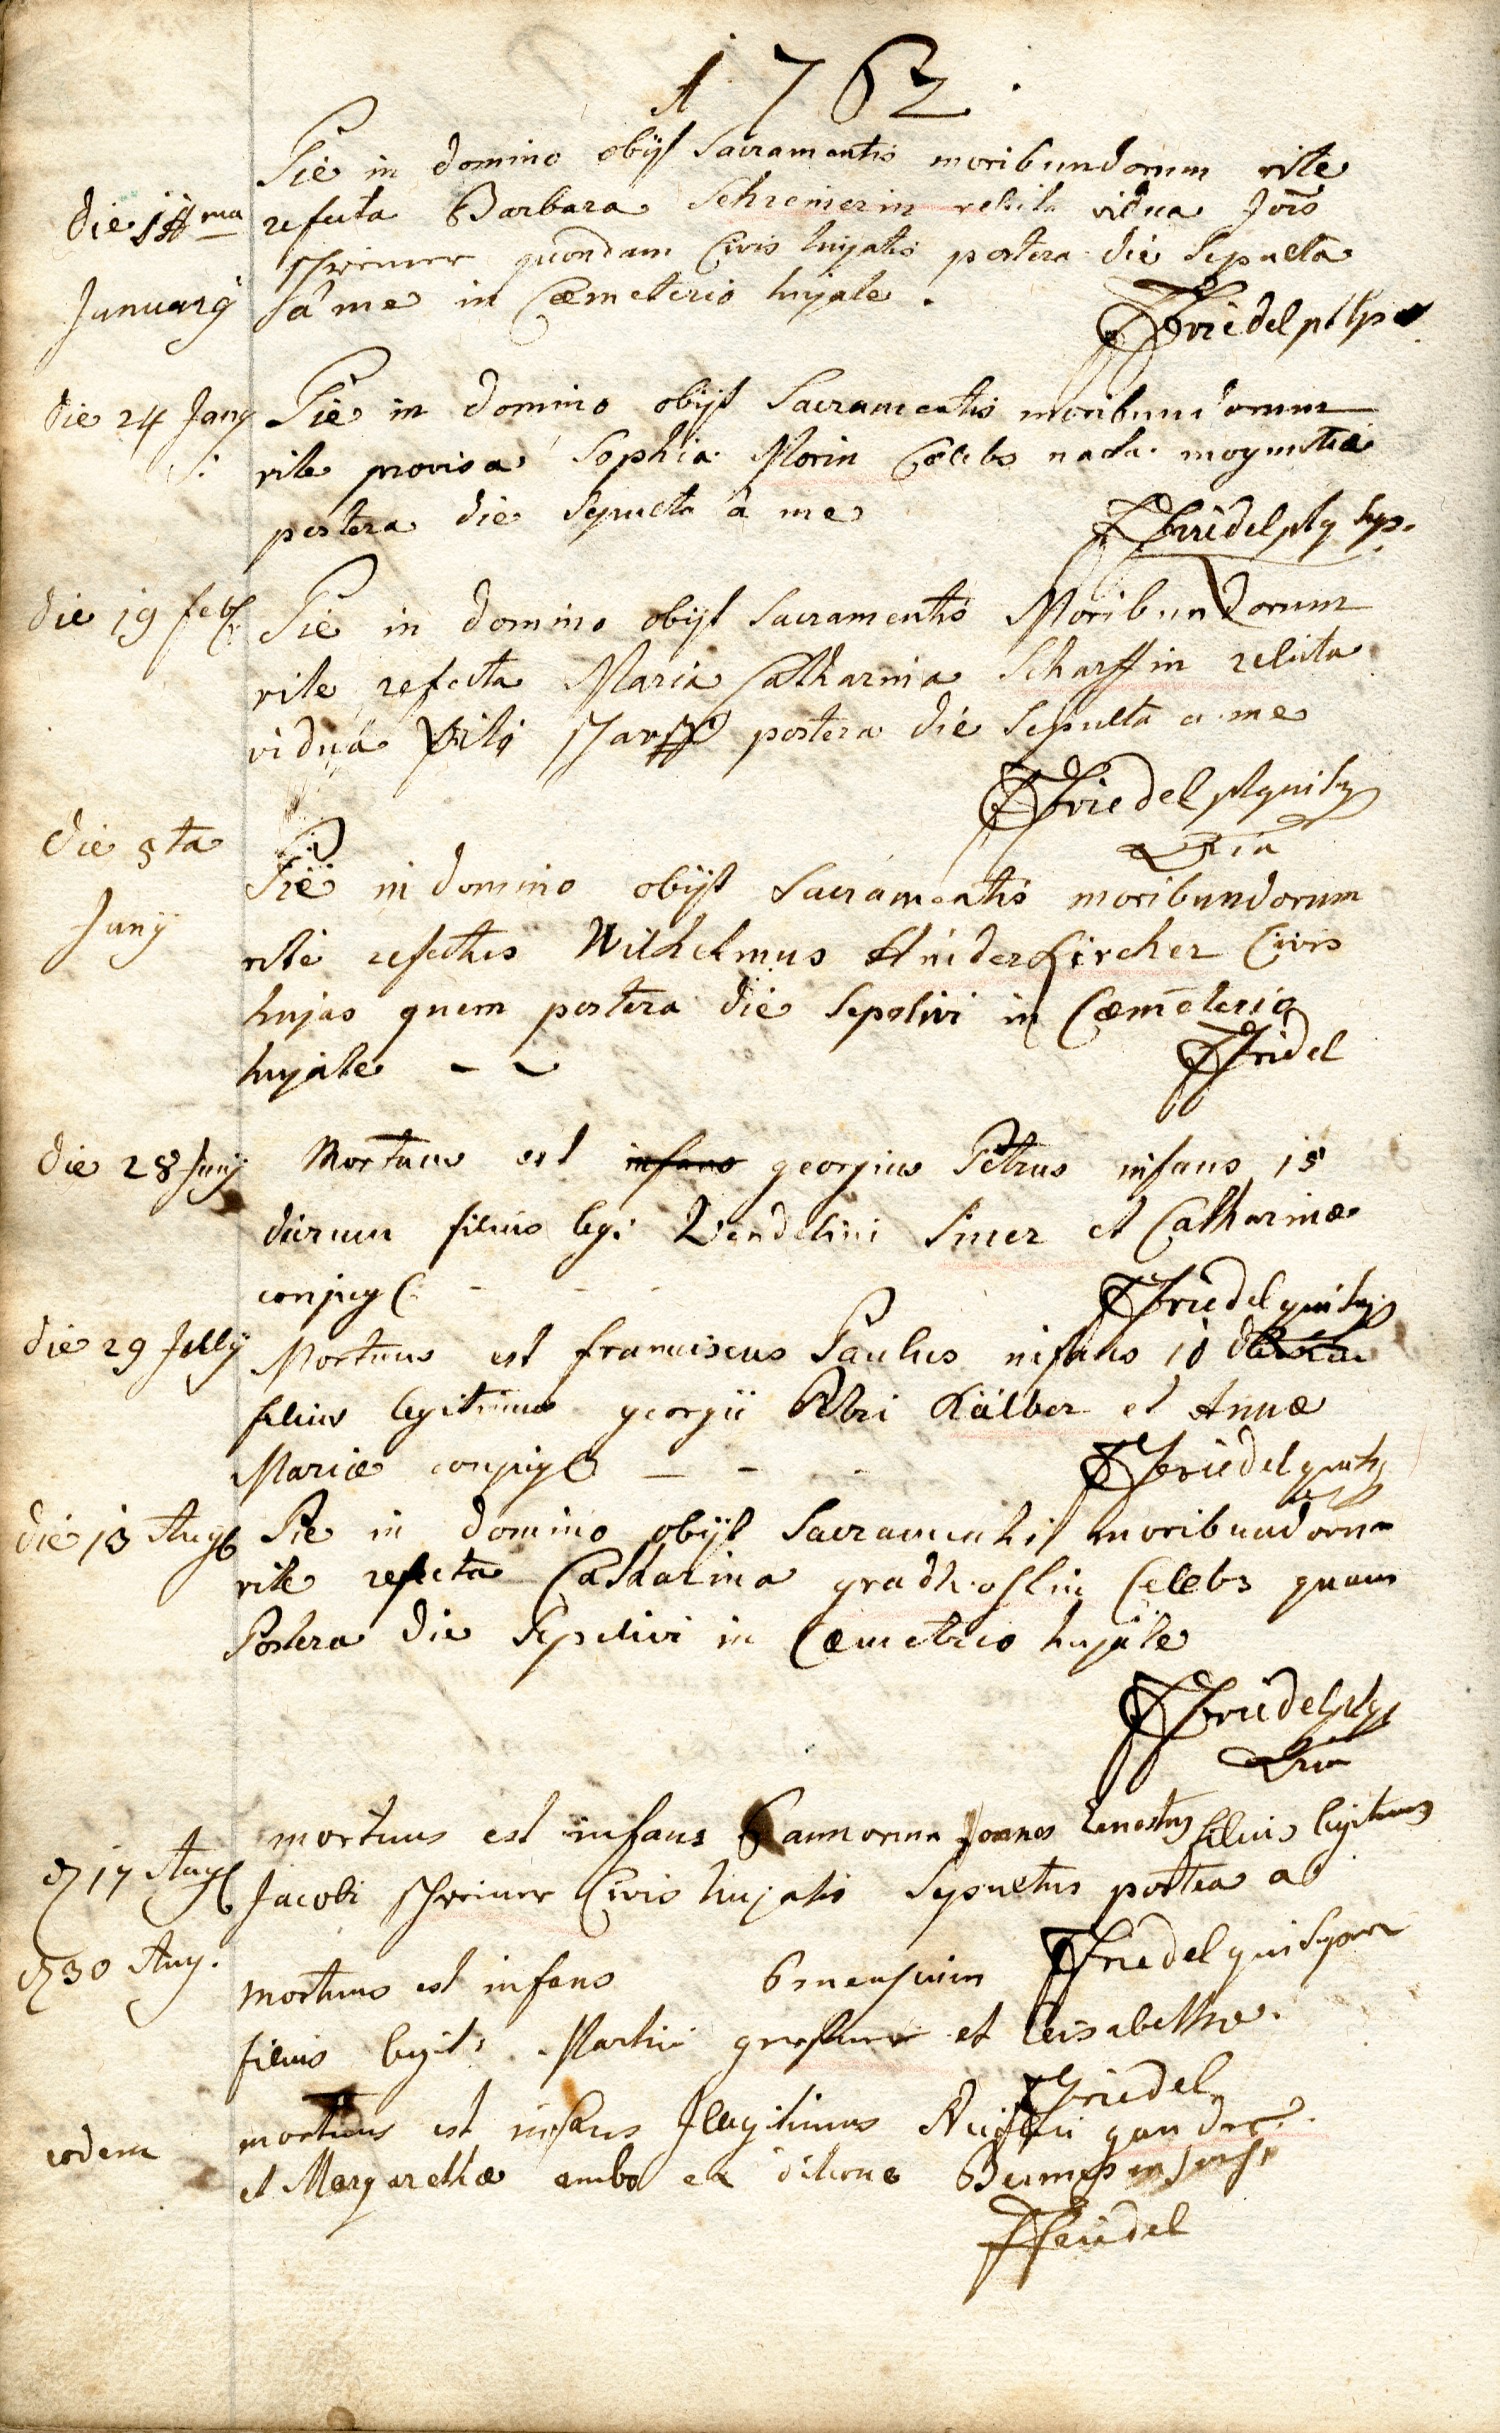 A 1762.
Pie in domino obijt Sacramentis moribundorum rite
die 14ma refecta Barbara Schreinerin relicta vidua Jois
Schreiner quondam Civis hujatis postera die Sepulta
Januarij â me in Cæmeterio hujate.
FFriedel
die 24 Janij Pie in domino obijt Sacramentis moribundorum
rite provisa Sophia Morin Cælebs nata moguntiæ
postera die Sepulta â me
FFriedel
die 19 feb: Pie in domino obijt Sacramentis Moribundorum
rite refecta Maria Catharina Scharffin relicta
vidua Viti Scharff postera die Sepulta a me
FFriedel
die 5ta
Pie in domino obijt Sacramentis moribundorum
Junij
rite refectus Wilhelmus HinderKircher Civis
hujas quem postera die Sepelivi in Cæmeterio
hujate - -
FFridel
die 28 Junij Mortuus est infans georgius Petrus infans 15
dierum filius legi: Wendelini Simer et Catharinæ
conjug: - - -
FFriedel
die 29 Jullij Mortuus est franciscus Paulus infans 10
filius legitimus georgii Petri Kälber et Annæ
Mariæ conjug - - -
FFriedel
die 13 Aug Pie in domino obijt Sacramentis moribundorum
rite refecta Catharina gradhoslin Celebs quam
Postera die Sepelivi in Cæmeterio hujate
FFriedel
mortuus est infans 6 annorum Joannes Ernestus filius legitimus
d 17 Aug Jacobi Schreiner Civis hujatis Sepultus postea a
FFriedel qui
d 30 Aug. mortuus est infans 6 mensium
filius legit: Martini et Elisabethæ.
FFriedel
eodem mortuus est infans Illegitimus
et Margarethæ ambo ex ditione
FFriedel